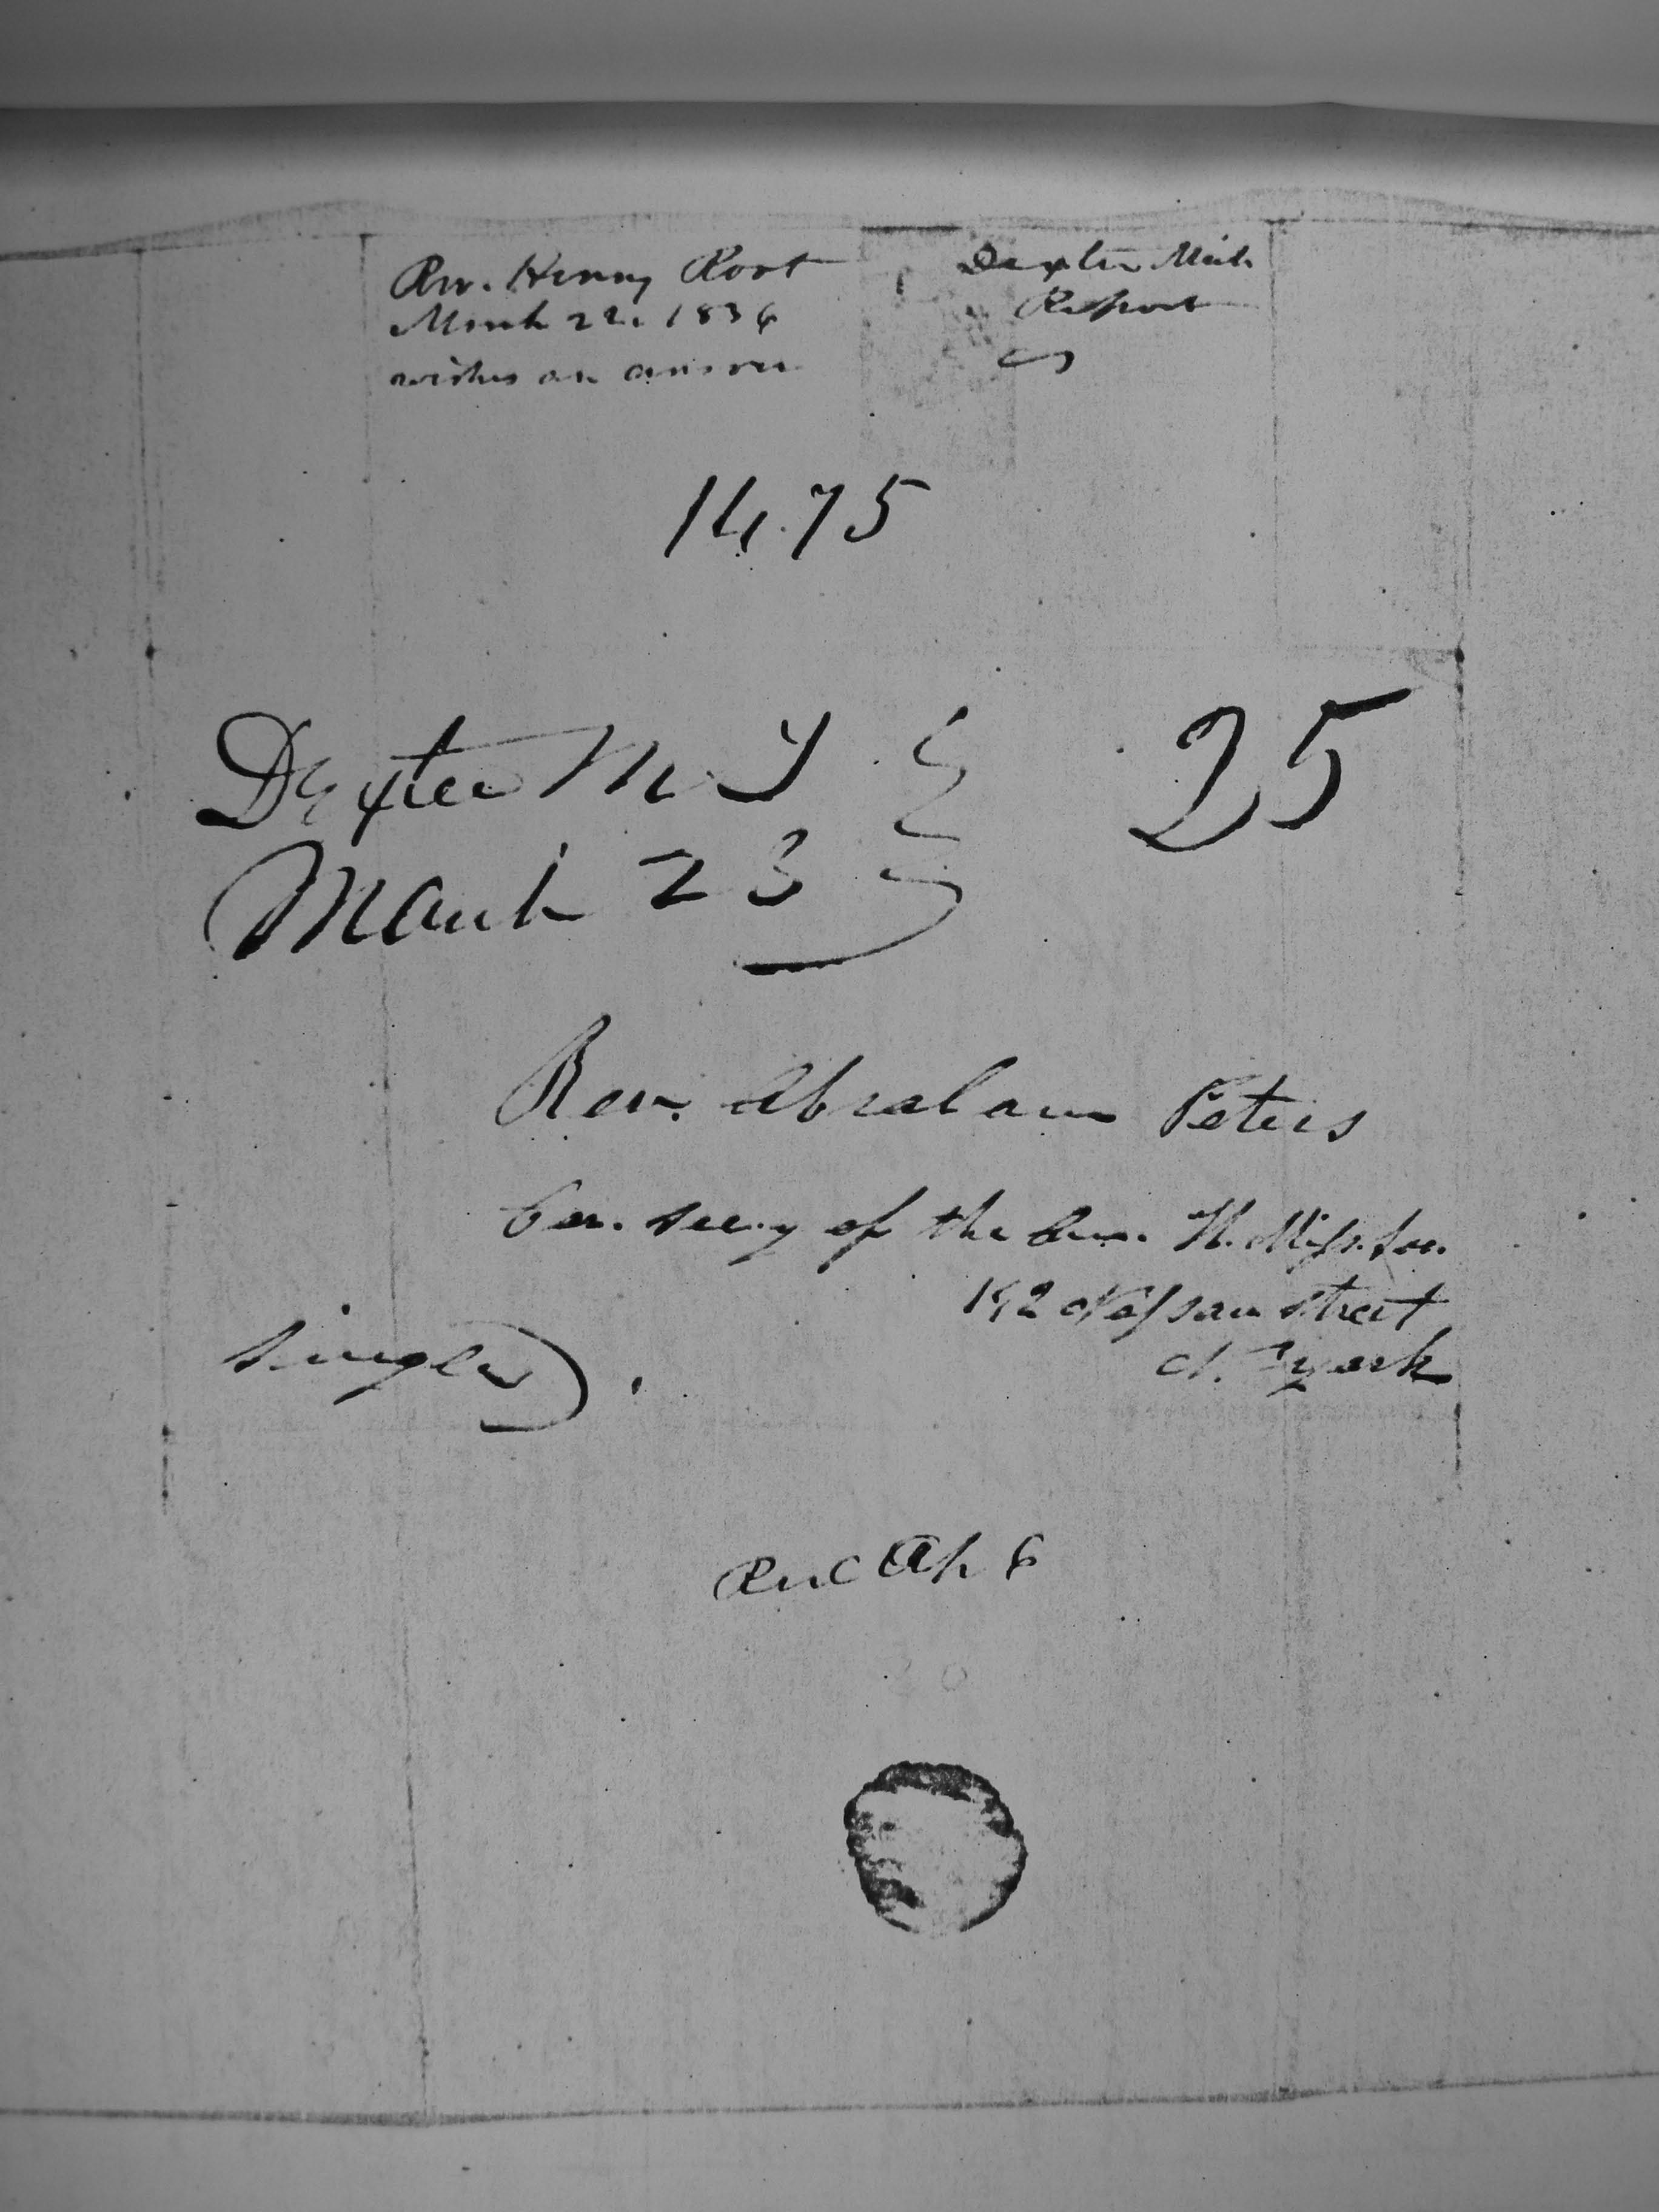 Rev. Henry Root
March 22. 1836
wishes an answer
Dexter Mich.
Report
14.75
Dexter M. T
March 23
25
Rev. Abraham Peters
Cor. Sec.y of the Am. H. Miss. Soc.
Nassau Street
N. York
Single
Rec Ap 6